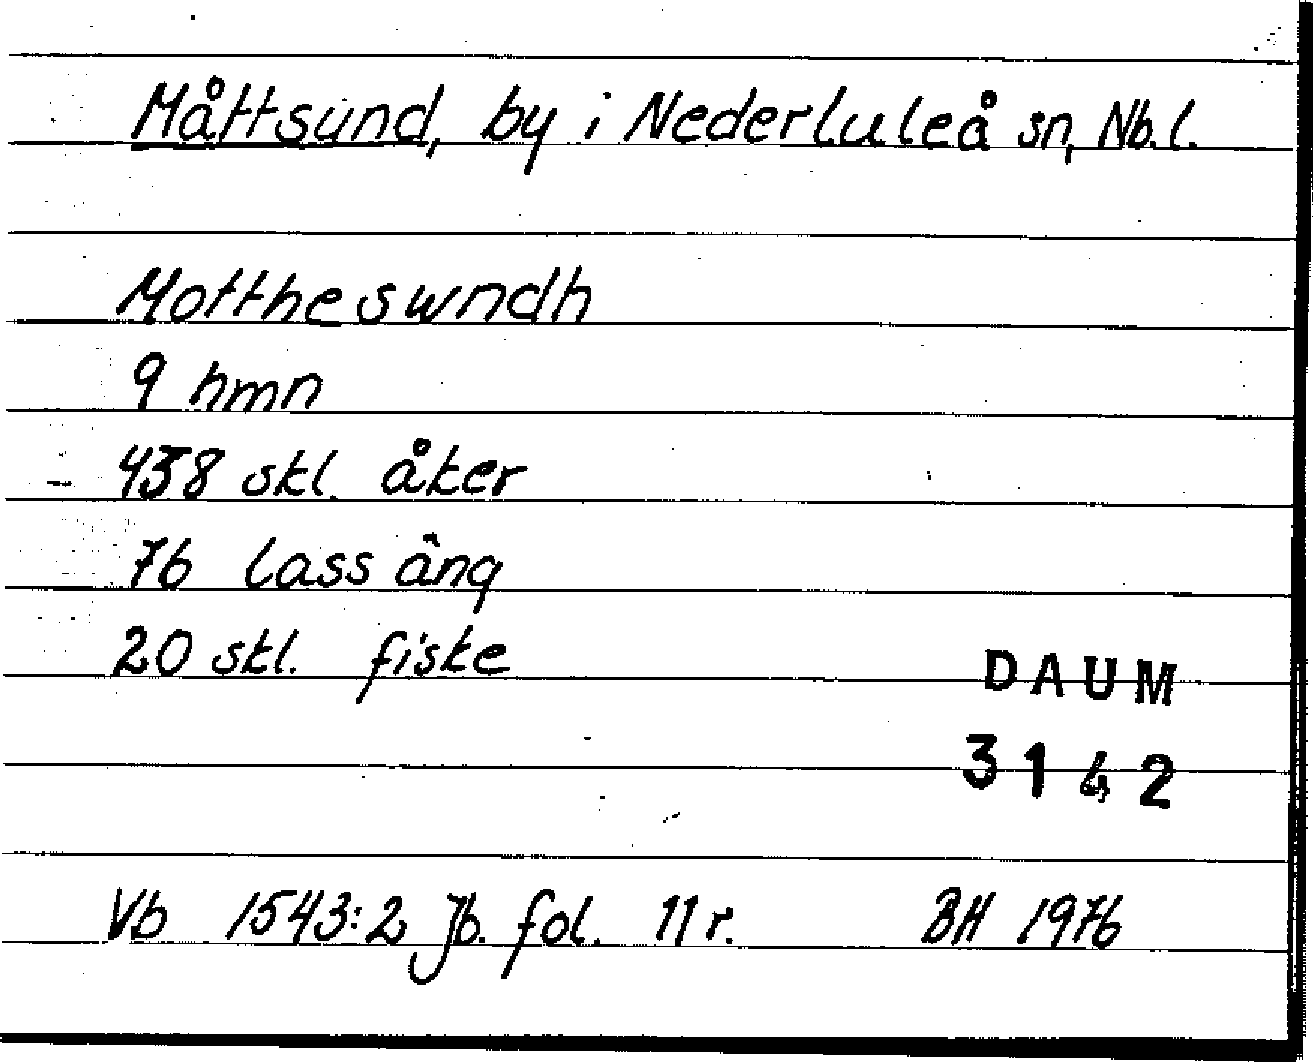 Måttsund, by i Nederluleå sn, Nb.l.
Mottheswndh
9 hmn
438 skl. åker
76 lass äng
20 skl. fiske
DAUM
3142
Vb 1543:2 Jb. fol. 11 r. BH 1976